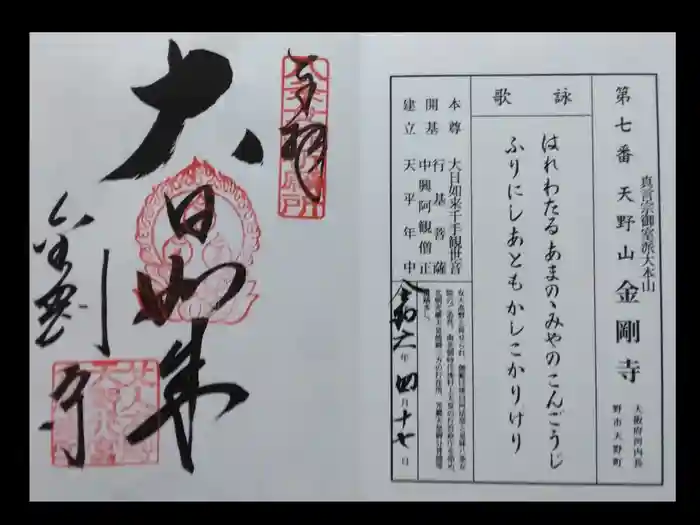 第七番 天野山 金剛寺
真言宗御室派大本山
大阪府河内長
野市天野町
詠歌
はれわたるあまのゝみやのこんごうじ
ふりにしあともかしこかりけり
本尊 大日如来千手観世音
開基 行基菩薩
中興阿観僧正
建立 天平年中
令和六年四月十七日
奉拝
大日如来
金剛寺